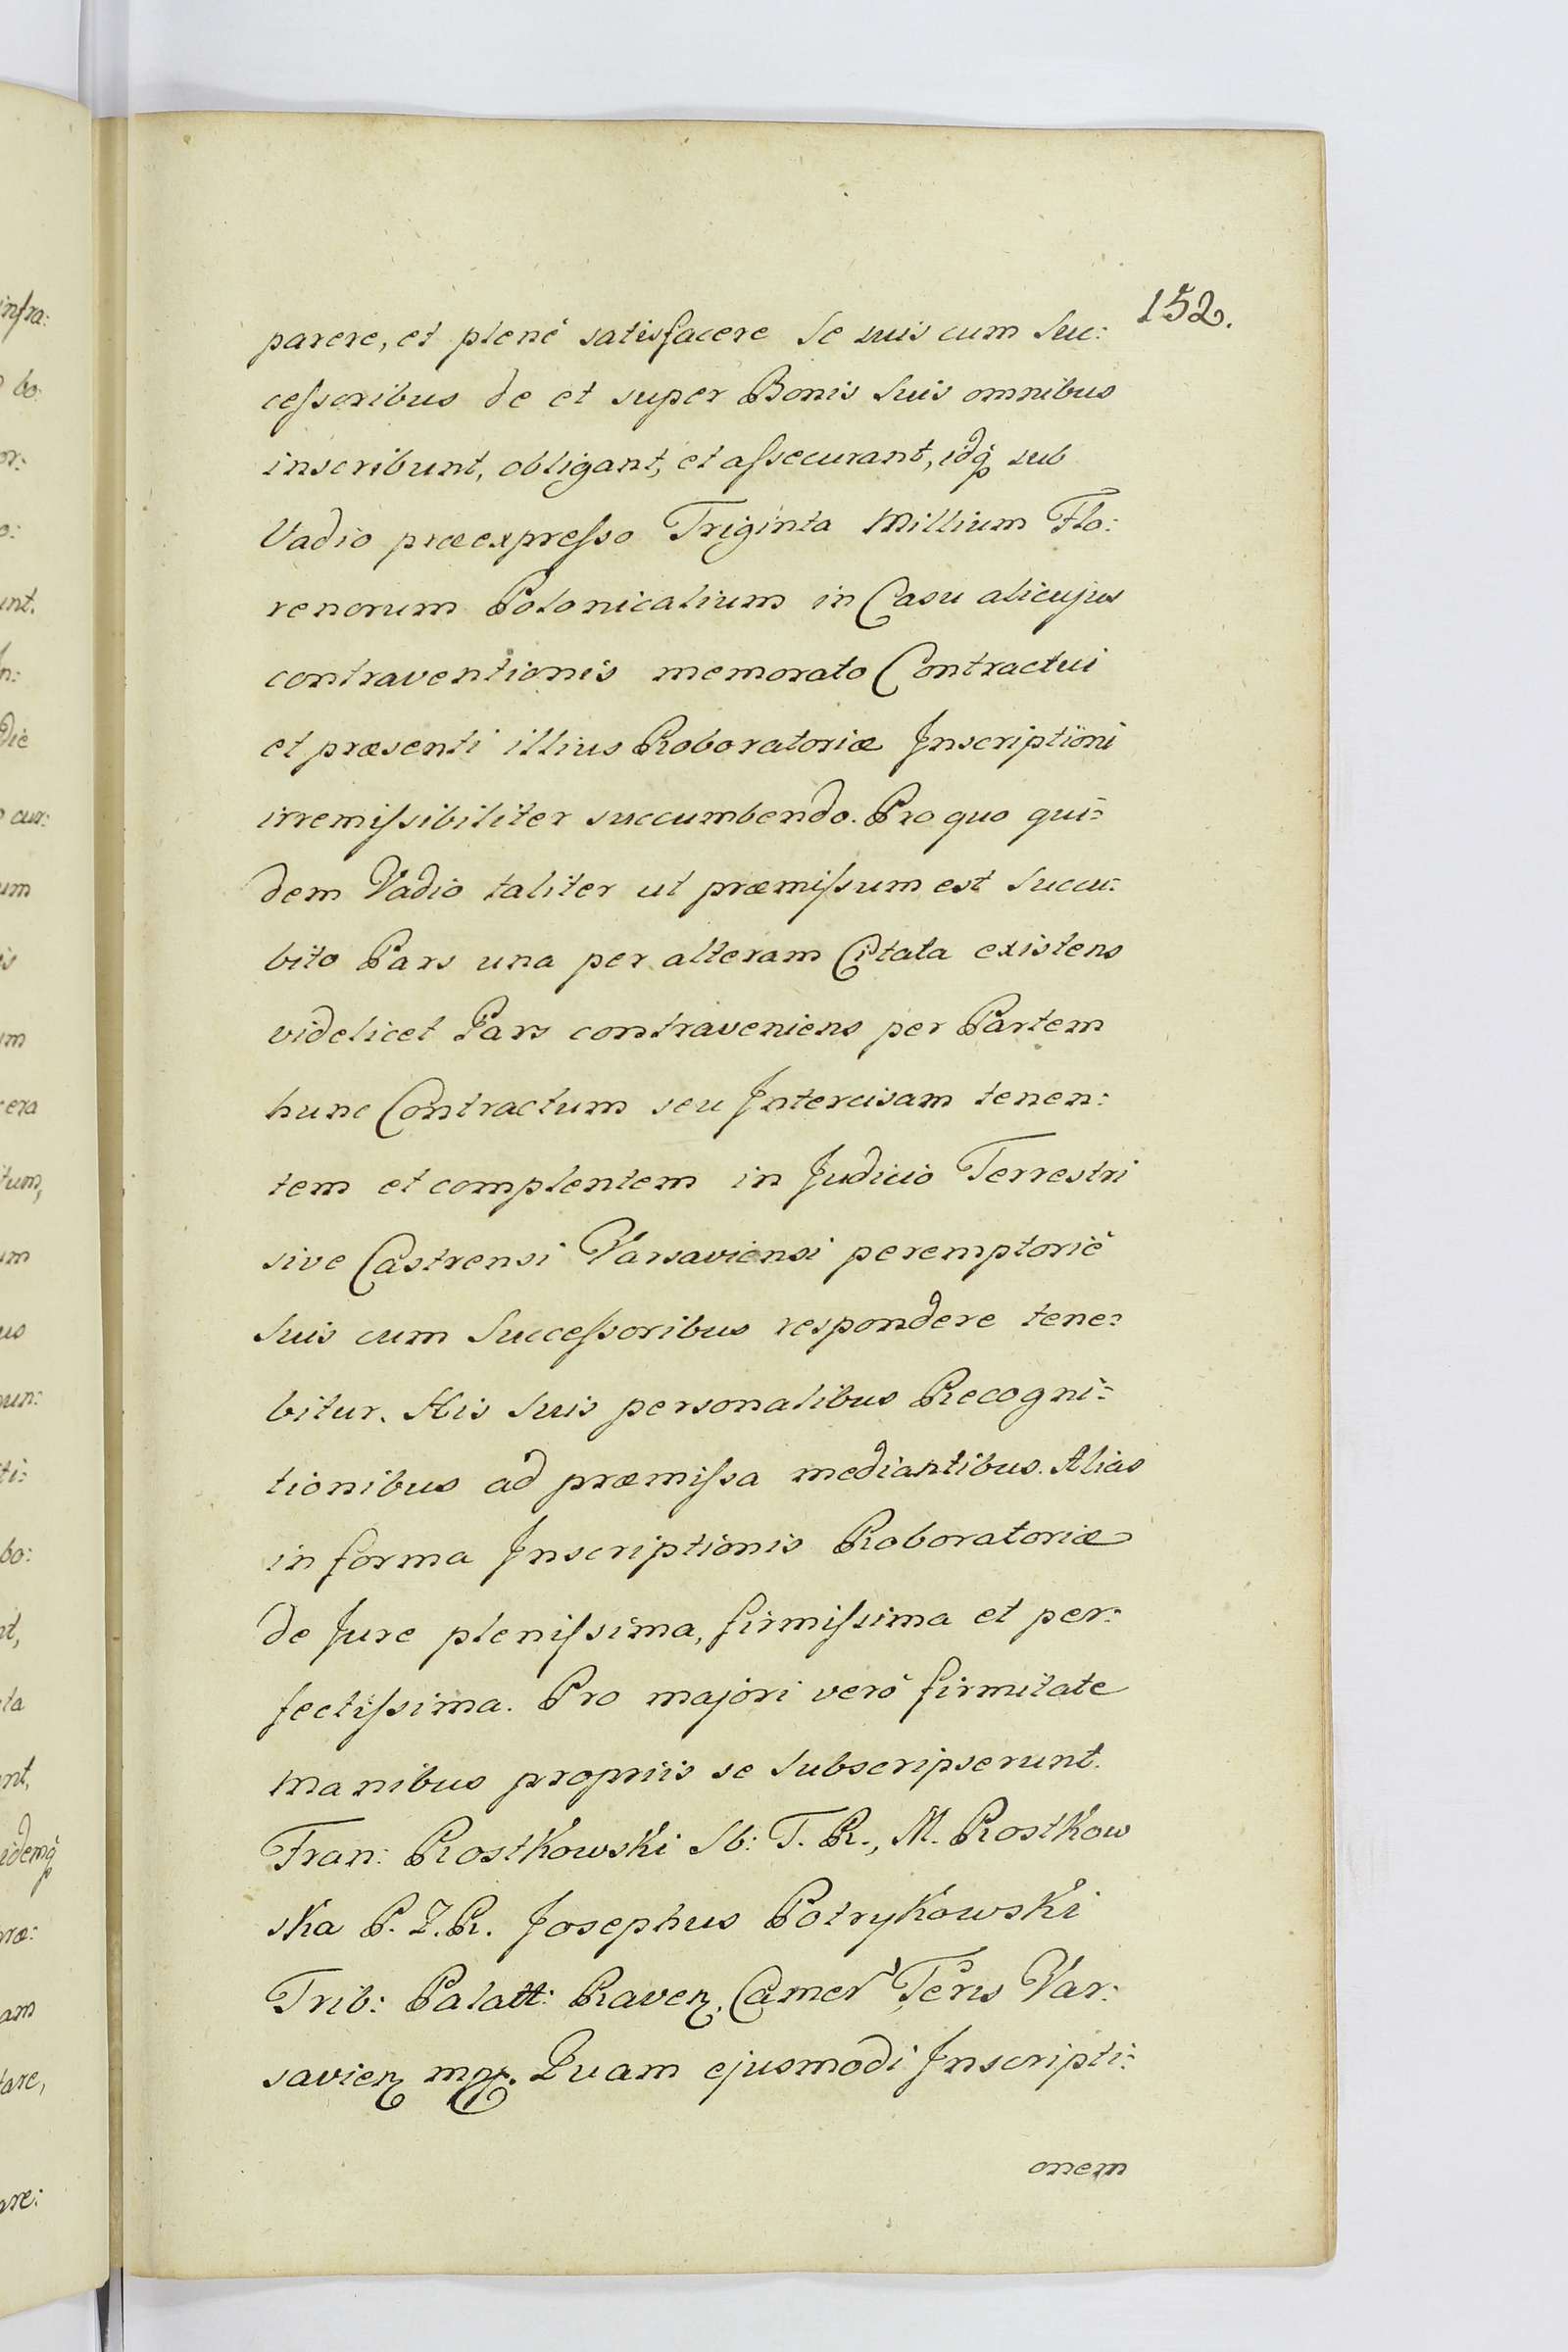 152.
parere, et plenè satisfacere Se suis cum Suc:
ceſsoribus de et super Bonis Suis omnibus
inscribunt, obligant, et aſsecurant, idq́ꝫ sub
Vadio præexpreſso Triginta Millium Flo:
renorum Polonicalium in Casu alicujus
contraventionis memorato Contractui
et præsenti illius Roboratoriæ Inscriptioni
irremiſsibiliter succumbendo. Pro quo qui:
dem Vadio taliter ut præmiſsum est Succu:
bito Pars una per alteram Citata existens
videlicet Pars contraveniens per Partem
hunc Contractum seu Intercisam tenen:
tem et complentem in Judicio Terrestri
sive Castrensi Varsaviensi peremptoriè
Suis cum Succeſsoribus respondere tene:
bitur. His Suis personalibus Recogni:
tionibus ad præmiſsa mediantibus. Alias
in forma Inscriptionis Roboratoriæ
de Jure pleniſsima, firmiſsima et per:
fectiſsima. Pro majori verò firmitate
manibus propriis se Subscripserunt.
Fran: Rostkowski Sb: T. R., M. Rostkow
ska P. Z. R. Josephus Potrykowski
Trib: Palatt: Raven. Camer Terris Var:
savien mp. Quam ejusmodi Inscripti:
onem